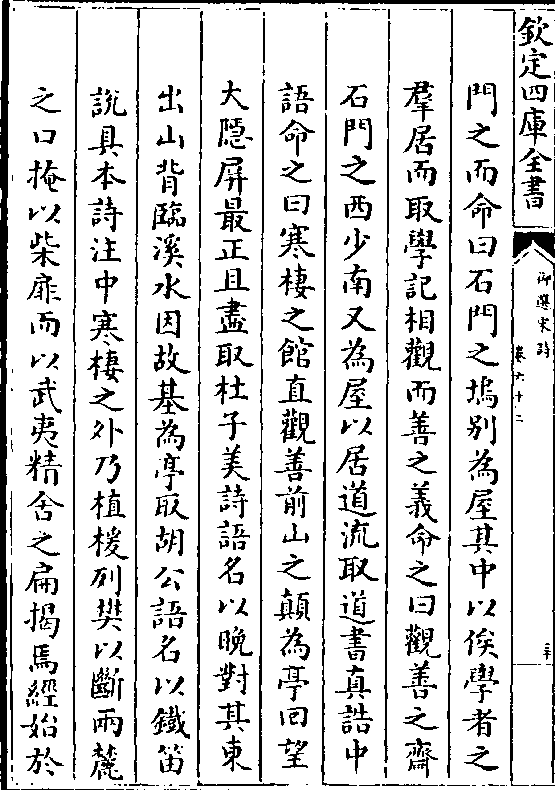 欽定四庫全書
御選宋詩
卷六十二
三十
門之而命曰石門之塢别為屋其中以俟學者之
羣居而取學記相觀而善之義命之曰觀善之齋
石門之西少南又為屋以居道流取道書真誥中
語命之曰寒棲之館直觀善前山之顛為亭回望
大隱屏最正且盡取杜子美詩語名以晚對其東
出山背臨溪水因故基為亭取胡公語名以鐵笛
說具本詩注中寒棲之外乃植楥列樊以斷兩麓
之口掩以柴扉而以武夷精舍之扁揭焉經始於